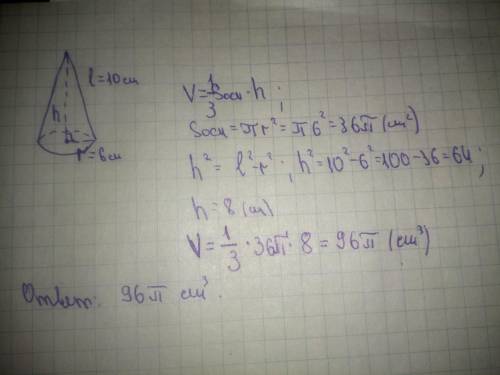 l=10см
h
r=6см
V=1/3 Sосн·h ;
Sосн=πr²=π6²=36π(см²)
h²= l²-r² ; h²=10²-6²=100-36=64 ;
h=8 (см)
V=1/3·36π·8=96π (см³)
Ответ: 96π см³.